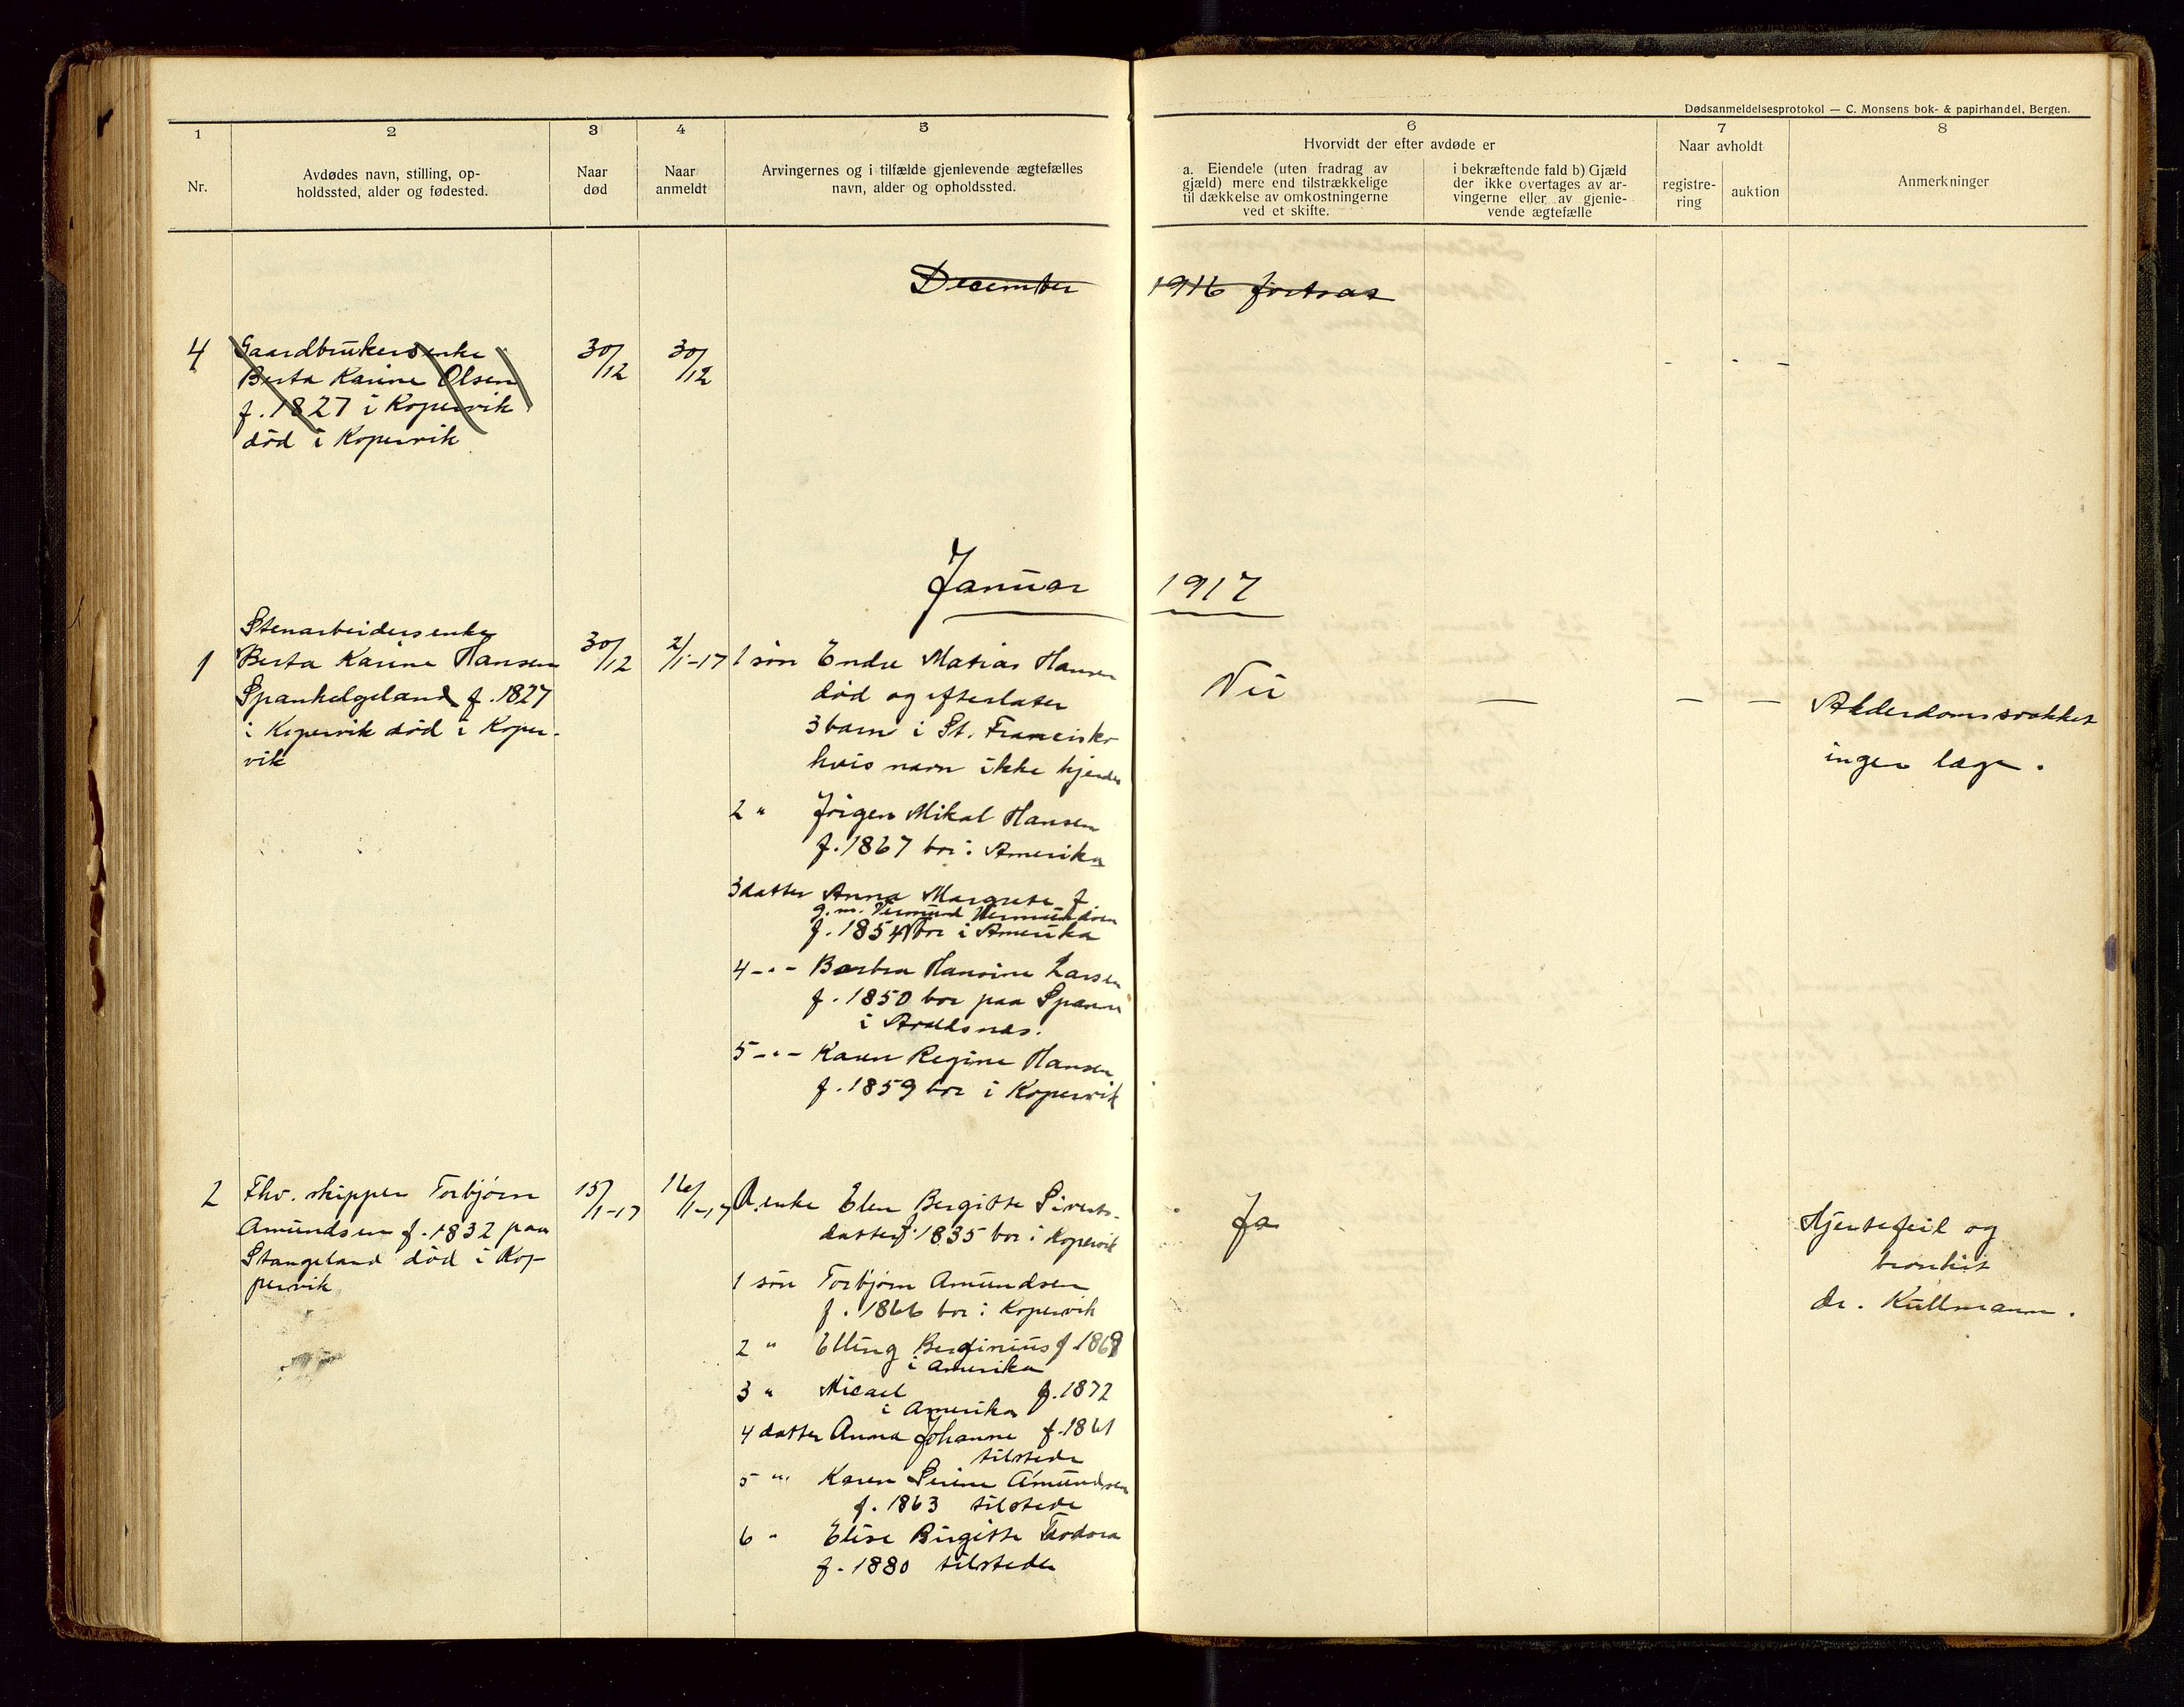 Dødsanmeldelsesprotokol — C. Monsens bok- & papirhandel, Bergen.
1
2
3
4
5
6
7
8
Nr.
Avdødes navn, stilling, op-
holdssted, alder og fødested.
Naar
død
Naar
anmeldt
Arvingernes og i tilfælde gjenlevende ægtefælles
navn, alder og opholdssted.
Hvorvidt der efter avdøde er
a. Eiendele (uten fradrag av
gjæld) mere end tilstrækkelige
til dækkelse av omkostningerne
ved et skifte.
i bekræftende fald b) Gjæld
der ikke overtages av ar-
vingerne eller av gjenle-
vende ægtefælle
Naar avholdt
registre-
ring
auktion
Anmerkninger
December 1916 fortsat
4 Gaardbrukersenke 30/12 30/12
Berta Karine Olsen
f. 1827 i Kopervik
død i Kopervik
Januar 1917
Stenarbeidersenke
1 Berta Karine Hansen 30/12 2/1-17
Spankelgeland f. 1827
i Kopervik død i Koper-
vik
1 søn Endre Matias Hansen
død og efterlater
3 barn i St. Francisko
hvis navn ikke kjendes
2 " Jørgen Mikal Hansen
f. 1867 bor i Amerika
3 datter Anna Margrete f
g.m. Vermund Vermundsen
f. 1854 bor i Amerika
4 -"- Barbra Hansine Larsen
f. 1850 bor paa Spanne
i Avaldsnes.
5 -"- Karen Regine Hansen
f. 1859 bor i Kopervik
Nei — — —
Alderdomssvakhet
ingen læge.
2 Fhv. skipper Torbjørn 15/1-17 16/1-17
Amundsen f. 1832 paa
Stangeland død i Ko-
pervik
A. enke Elen Bergitte Siverts-
datter f. 1835 bor i Kopervik
1 søn Torbjørn Amundsen
f. 1866 bor i Kopervik
2 " Elling Berginius f. 1869
i Amerika
3 " Micael f. 1872
i Amerika
4 datter Anna Johanne f. 1861
tilstede
5 "" Karen Serine Amundsen
f. 1863 tilstede
6 " Elise Birgitte Teodora
f. 1880 tilstede
Ja
Hjertefeil og
bronkit
dr. Kullmann.